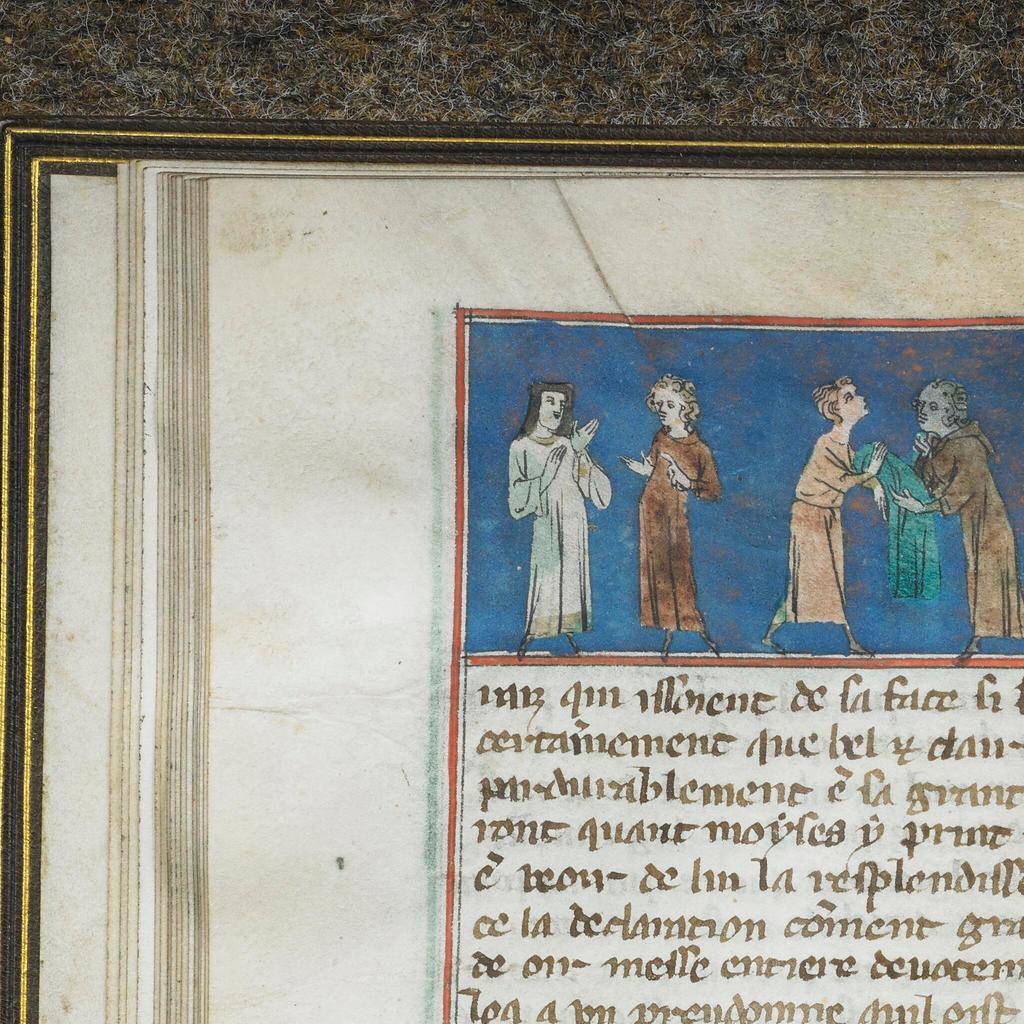 raiz qui issoient de sa face si
certainement que bel ⁊ clau
pardurablement ē sa grant
ront quant moÿses ÿ print
ē veoir de lui la resplendisse
ce la declaration cōment gra
de oir messe entiere deuotem
log a vn preudomme quil oist